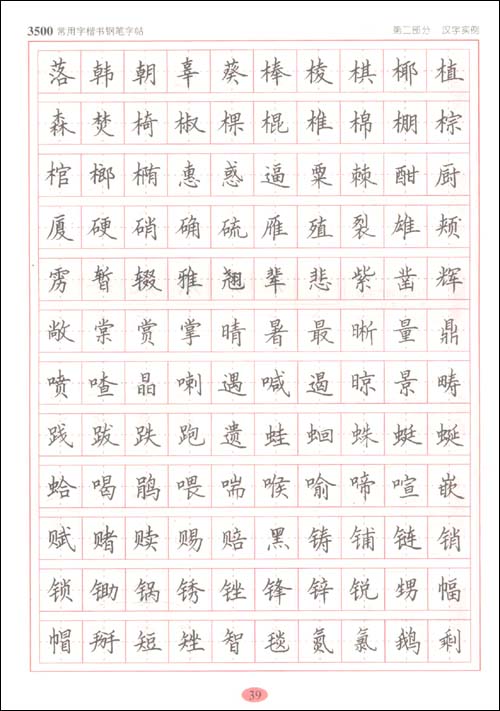 3500 常用字楷书钢笔字帖 第二部分 汉字实例
落韩朝辜葵棒棱棋椰植
森焚椅椒棵棍椎棉棚棕
棺榔椭惠惑逼粟棘酣厨
厦硬硝确硫雁殖裂雄颊
雳暂辍雅翘辈悲紫凿辉
敞棠赏掌晴暑最晰量鼎
喷喳晶喇遇喊遏晾景畴
践跋跌跑遗蛙蛔蛛蜓蜒
蛤喝鹃喂喘喉喻啼喧嵌
赋赌赎赐赔黑铸铺链销
锁锄锅锈锉锋锌锐甥幅
帽掰短矬智毯氮氯鹅剩
39